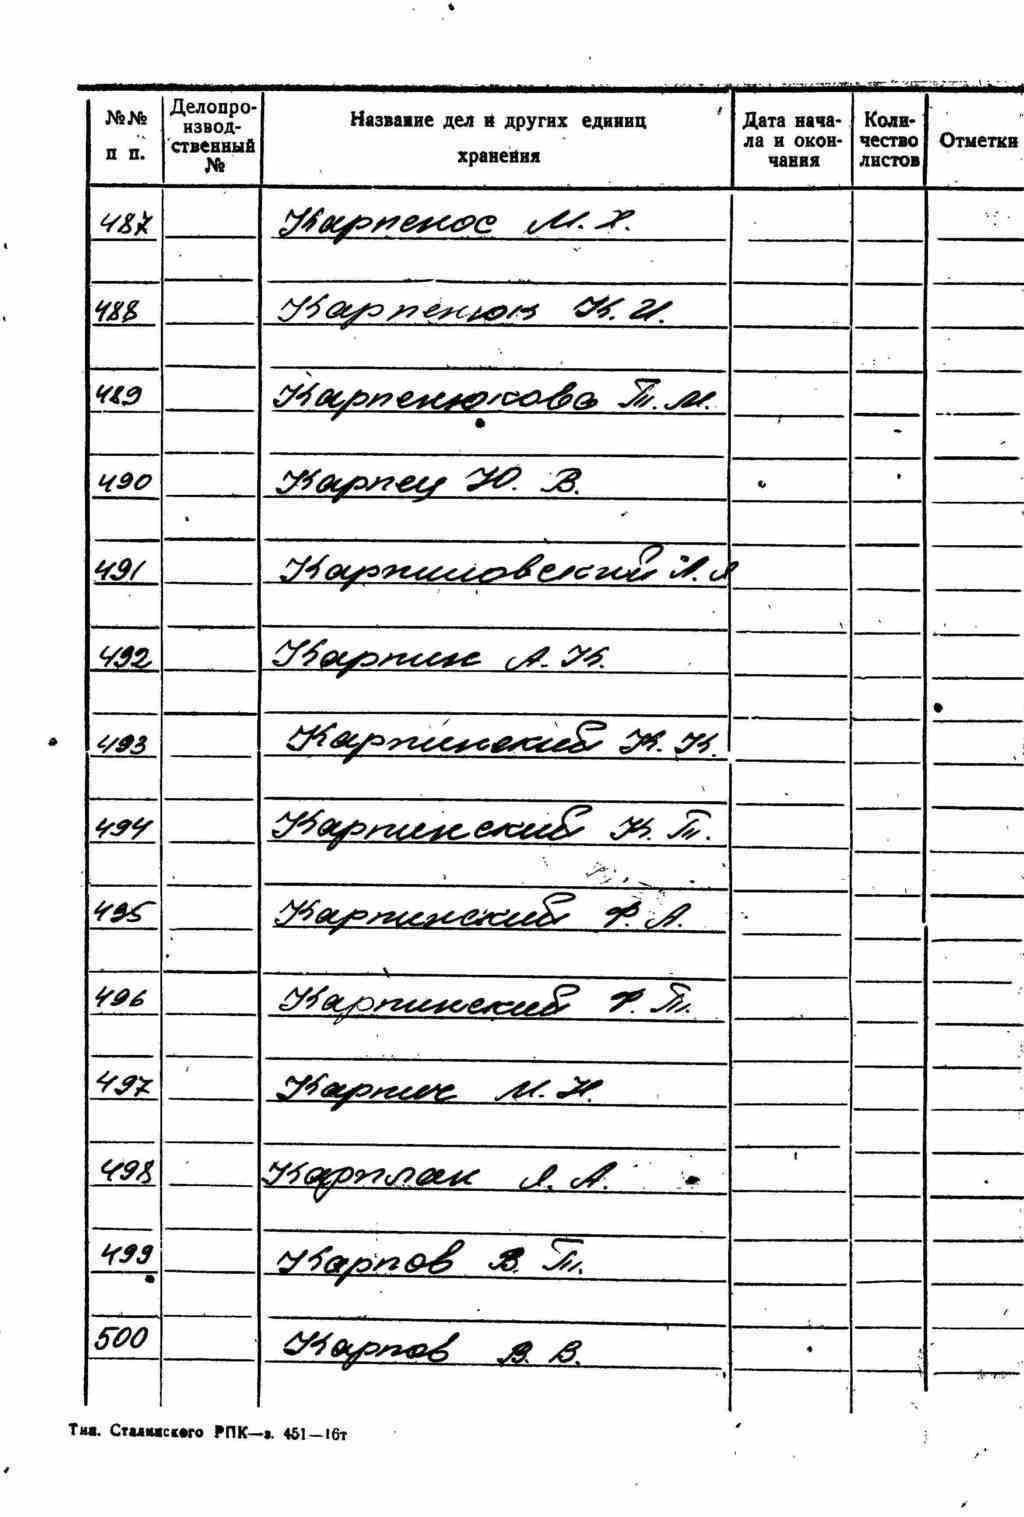 №№ п п. Делопроизводственный № Название дел и других единиц хранения Дата начала и окончания Количество листов Отметки
487 Карпенос М. Х.
488 Карпенюк К. И.
489 Карпенюкова Т. М.
490 Карпец Ю. В.
491 Карпиловский Л. Я
492 Карпин А. К.
493 Карпинский К. К.
494 Карпинский К. Т.
495 Карпинский Ф. А.
496 Карпинский Ф. Т.
497 Карпич М. Н.
498 Карплак Я. А.
499 Карпов В. Т.
500 Карпов В. В.
Тип. Сталинского РПК—з. 451—16т